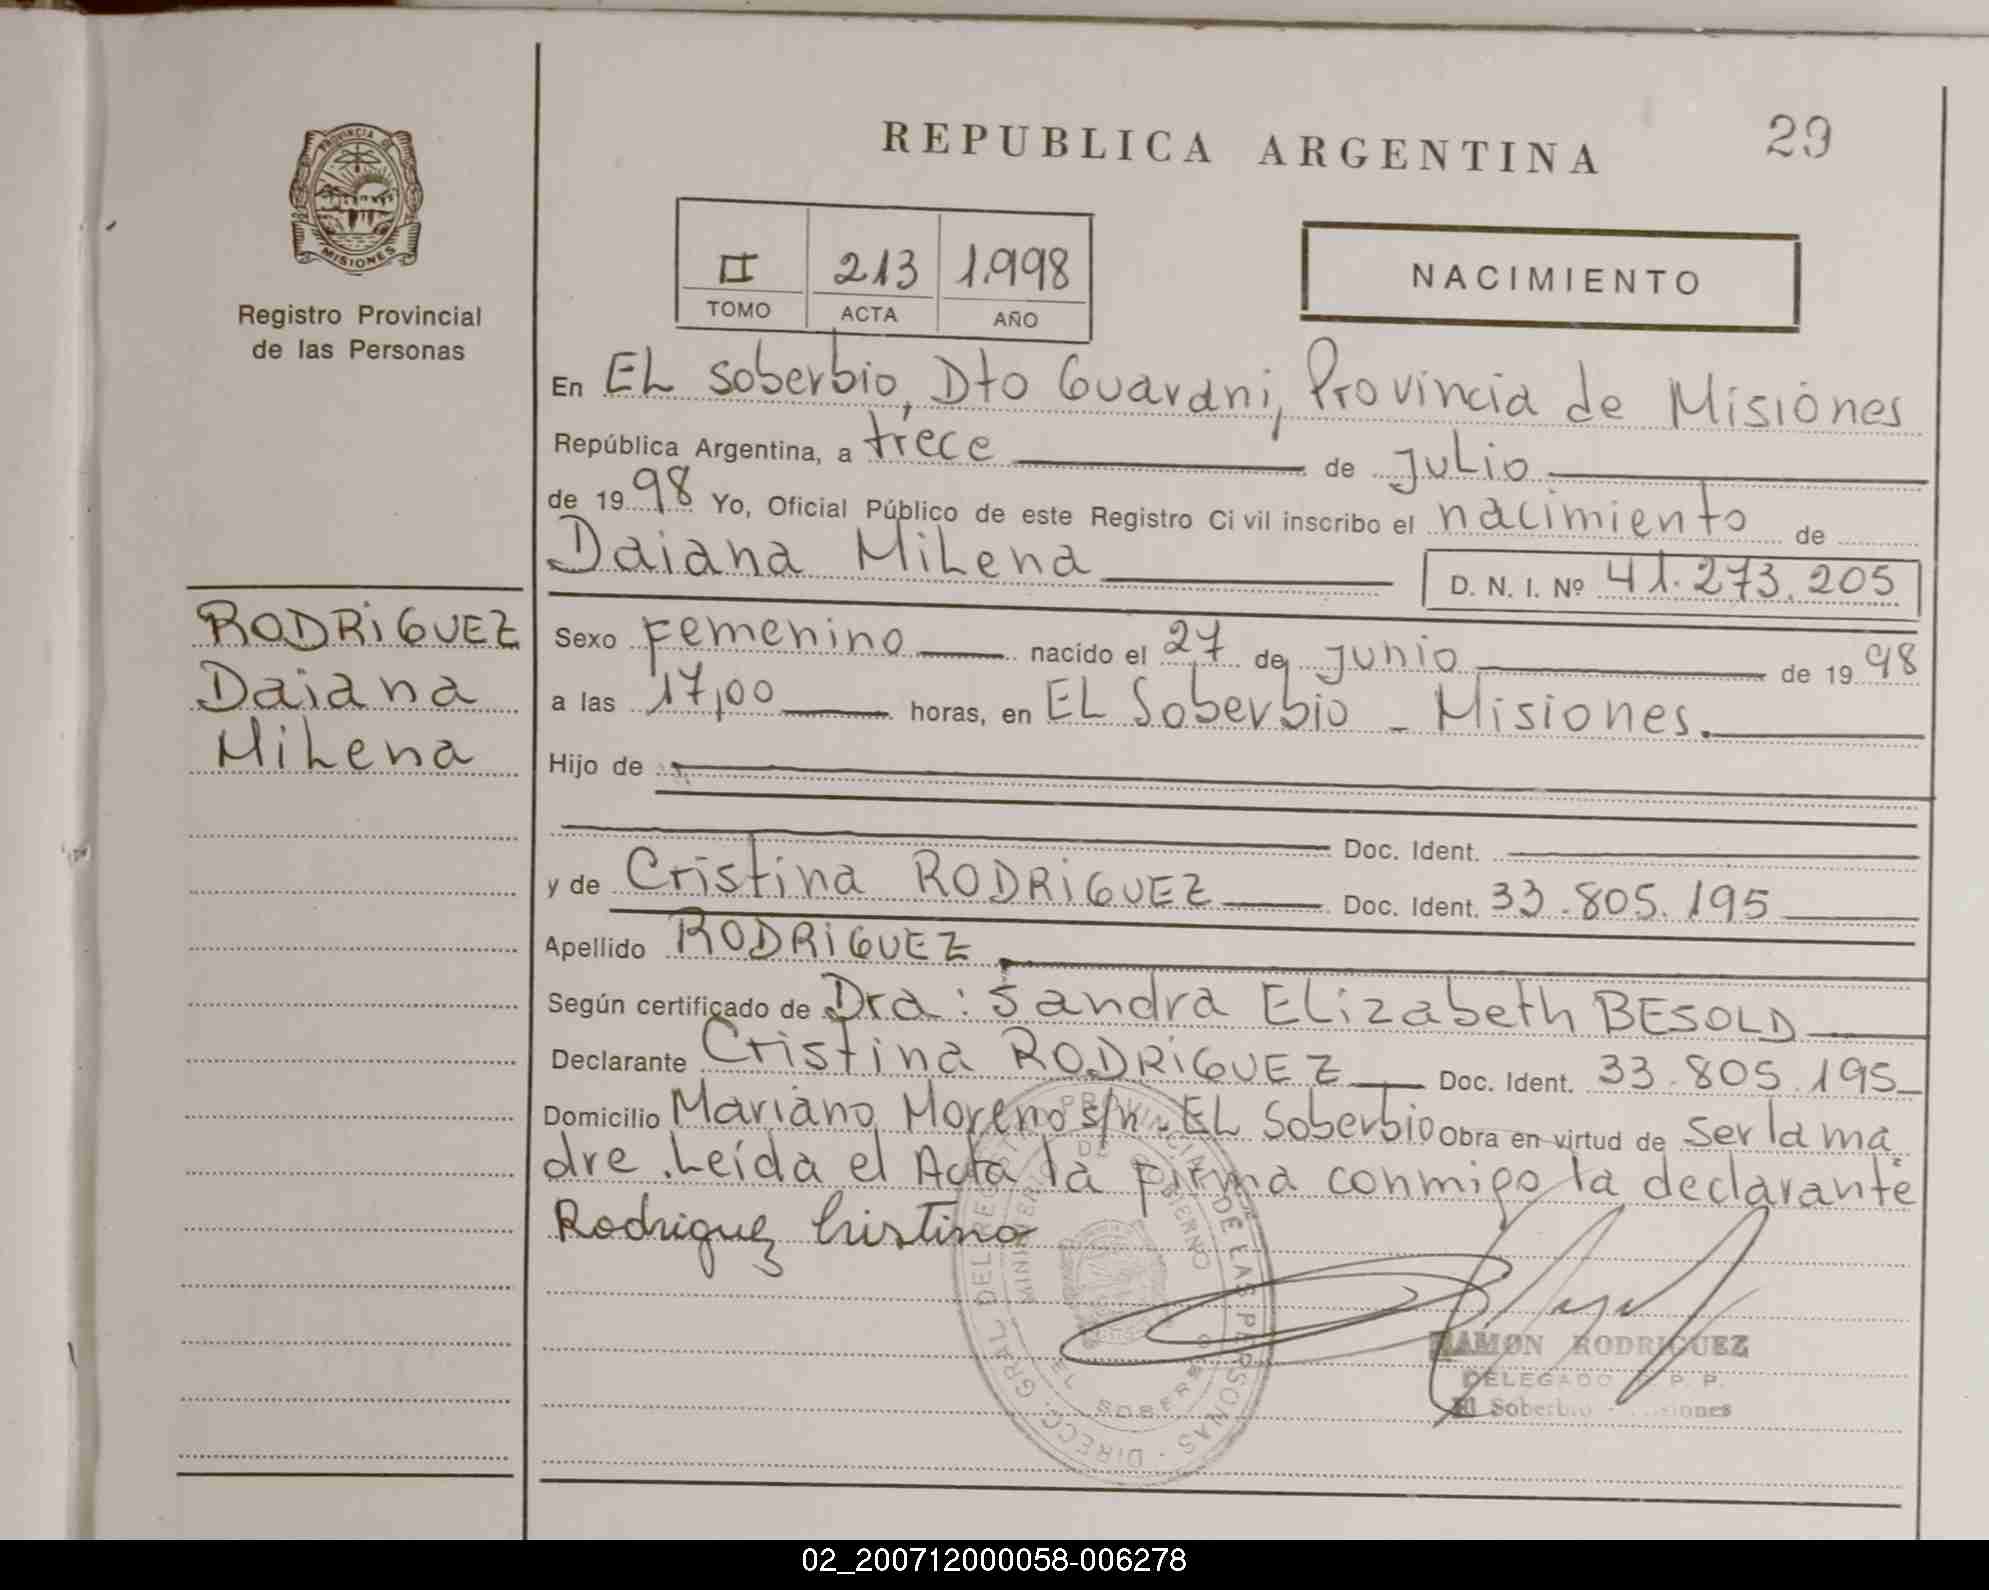 PROVINCIA DE
MISIONES
Registro Provincial
de las Personas
RODRIGUEZ
Daiana
Milena
REPUBLICA ARGENTINA
29
II 213 1.998
TOMO ACTA AÑO
NACIMIENTO
En EL Soberbio, Dto Guarani, Provincia de Misiones
República Argentina, a trece de Julio
de 1998 Yo, Oficial Público de este Registro Civil inscribo el nacimiento de
Daiana Milena D. N. I. Nº 41.273.205
Sexo Femenino nacido el 27 de Junio de 1998
a las 17,00 horas, en EL Soberbio - Misiones.
Hijo de
Doc. Ident.
y de Cristina RODRIGUEZ Doc. Ident. 33.805.195
Apellido RODRIGUEZ
Según certificado de Dra: Sandra Elizabeth BESOLD
Declarante Cristina RODRIGUEZ Doc. Ident. 33.805.195
Domicilio Mariano Moreno s/n. EL Soberbio Obra en virtud de ser la ma
dre. Leída el Acta la firma conmigo la declarante
Rodriguez Cristina
DIRECC. GRAL. DEL REGIST. PROVINCIAL DE LAS PERSONAS
MINISTERIO DE GOBIERNO
EL SOBERBIO
RAMON RODRIGUEZ
DELEGADO R. P. P.
El Soberbio - Misiones
02_200712000058-006278